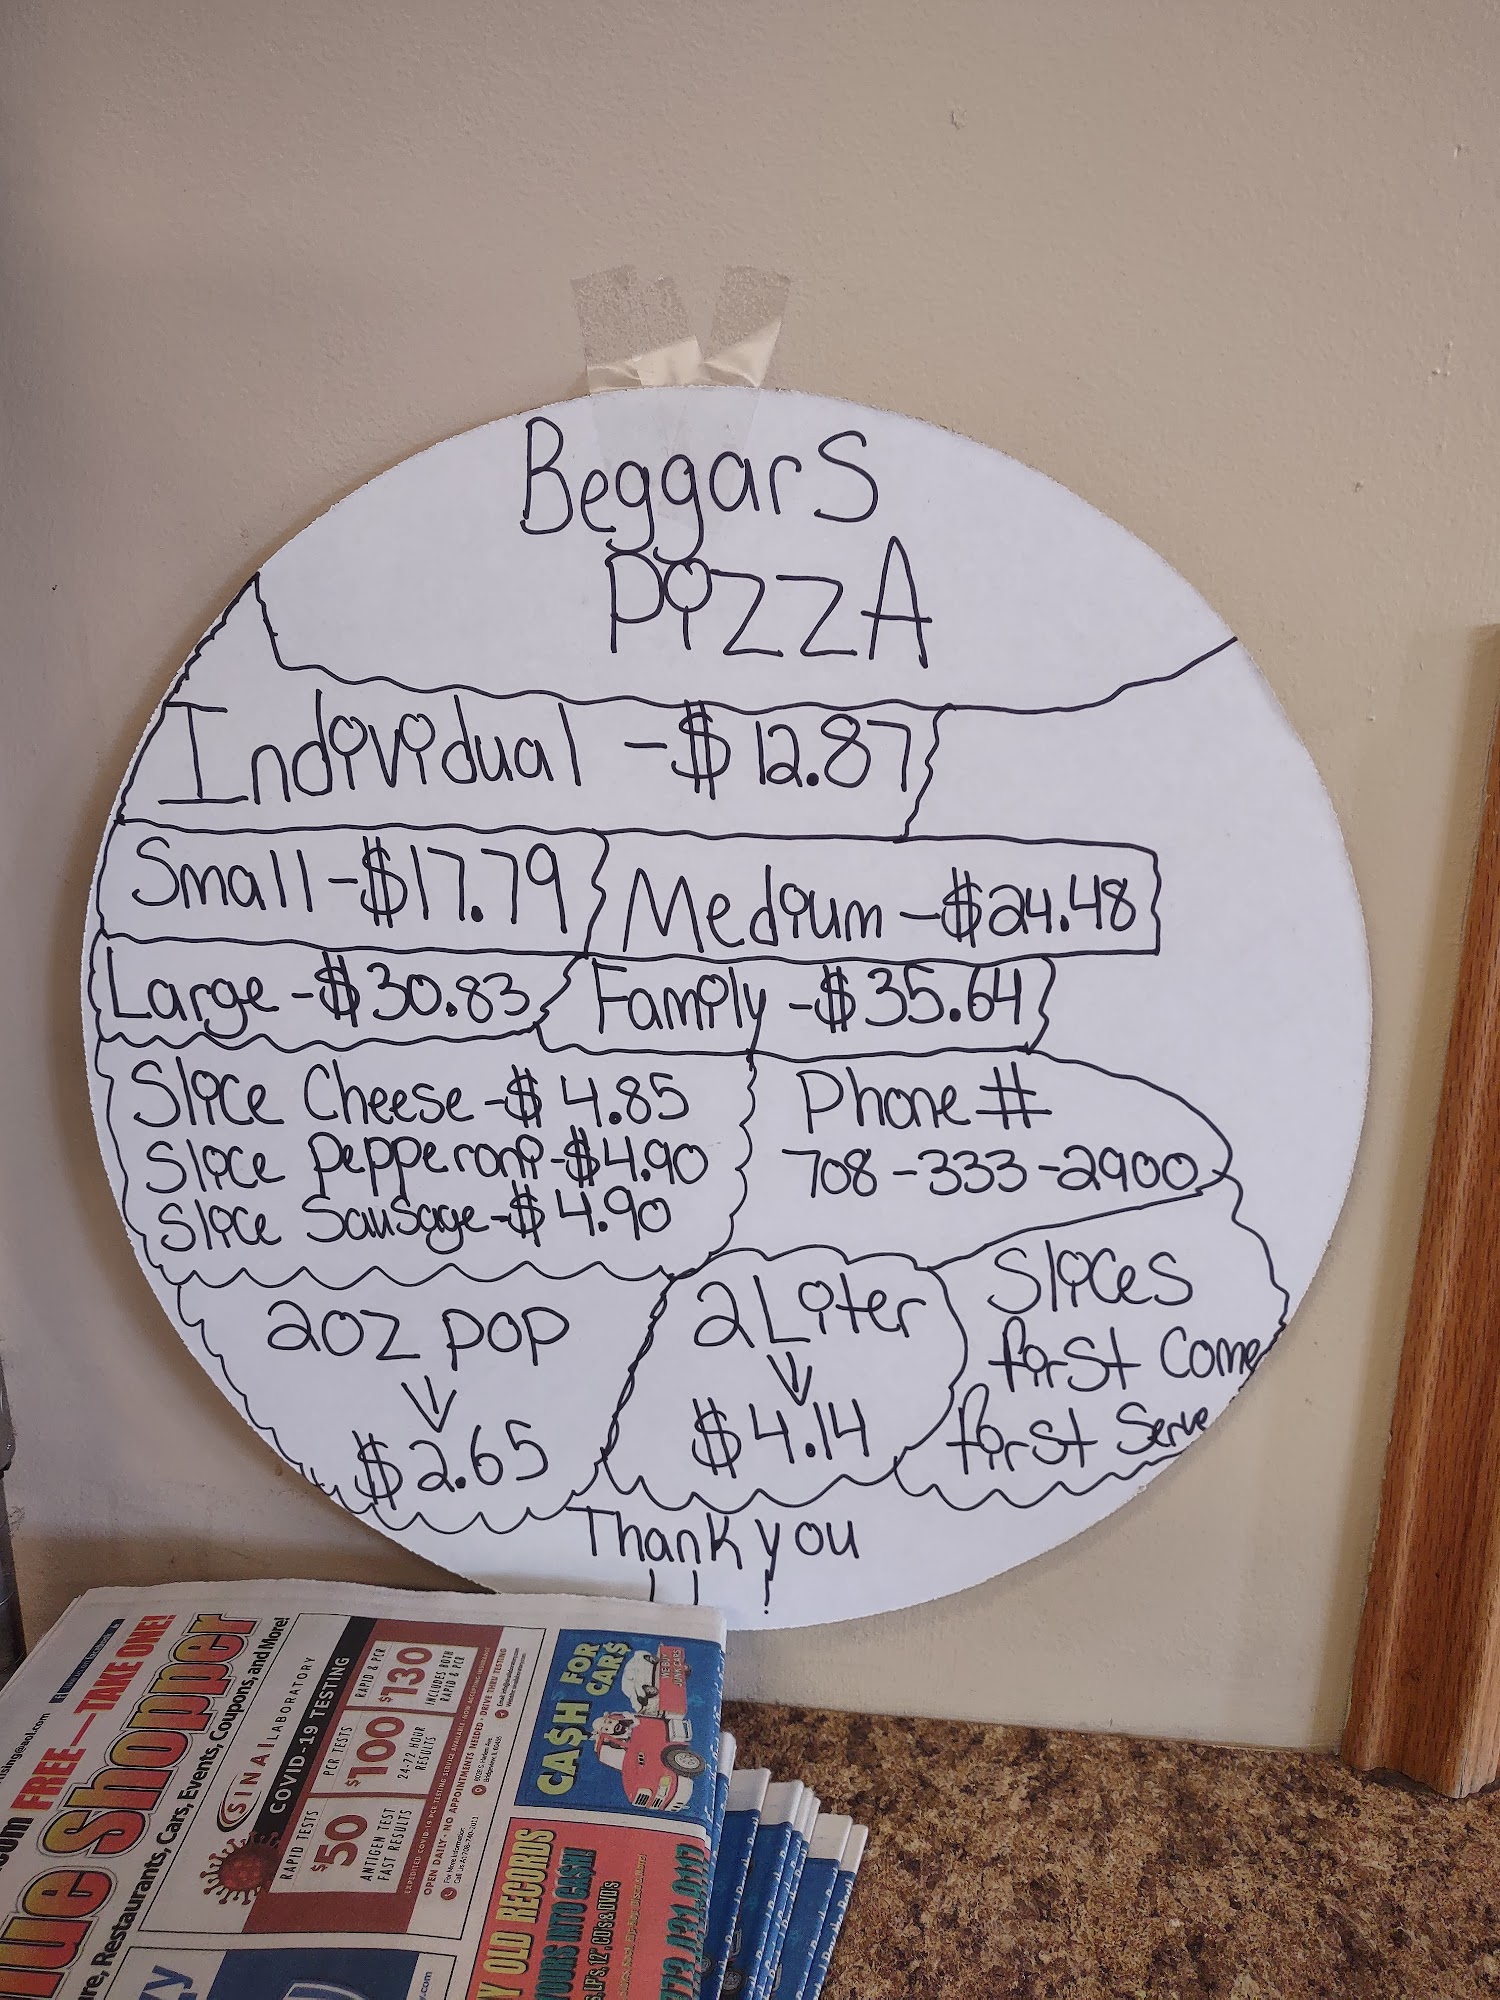 BeggarS
PiZZA
Individual - $12.87
Small - $17.79
Medium - $24.48
Large - $30.83
Family - $35.64
Slice Cheese - $4.85
Slice Pepperoni - $4.90
Slice Sausage - $4.90
Phone #
708-333-2900
2oz pop
$2.65
2 Liter
$4.14
Slices
first Come
first Serve
Thank you
FREE—TAKE ONE!
ue Shopper
re, Restaurants, Cars, Events, Coupons, and More!
SINAI LABORATORY
COVID-19 TESTING
RAPID TESTS
$50
ANTIGEN TEST
FAST RESULTS
PCR TESTS
$100
24-72 HOUR
RESULTS
RAPID & PCR
$130
INCLUDES BOTH
RAPID & PCR
EXPEDITED COVID-19 PCR TESTING SERVICE AVAILABLE NOW ACCEPTING INSURANCE
OPEN DAILY - NO APPOINTMENTS NEEDED - DRIVE THRU TESTING
CASH FOR
CAR$
WE BUY
JUNK CARS
Y OLD RECORDS
YOURS INTO CASH!
LP's, 12", CDs & DVD's